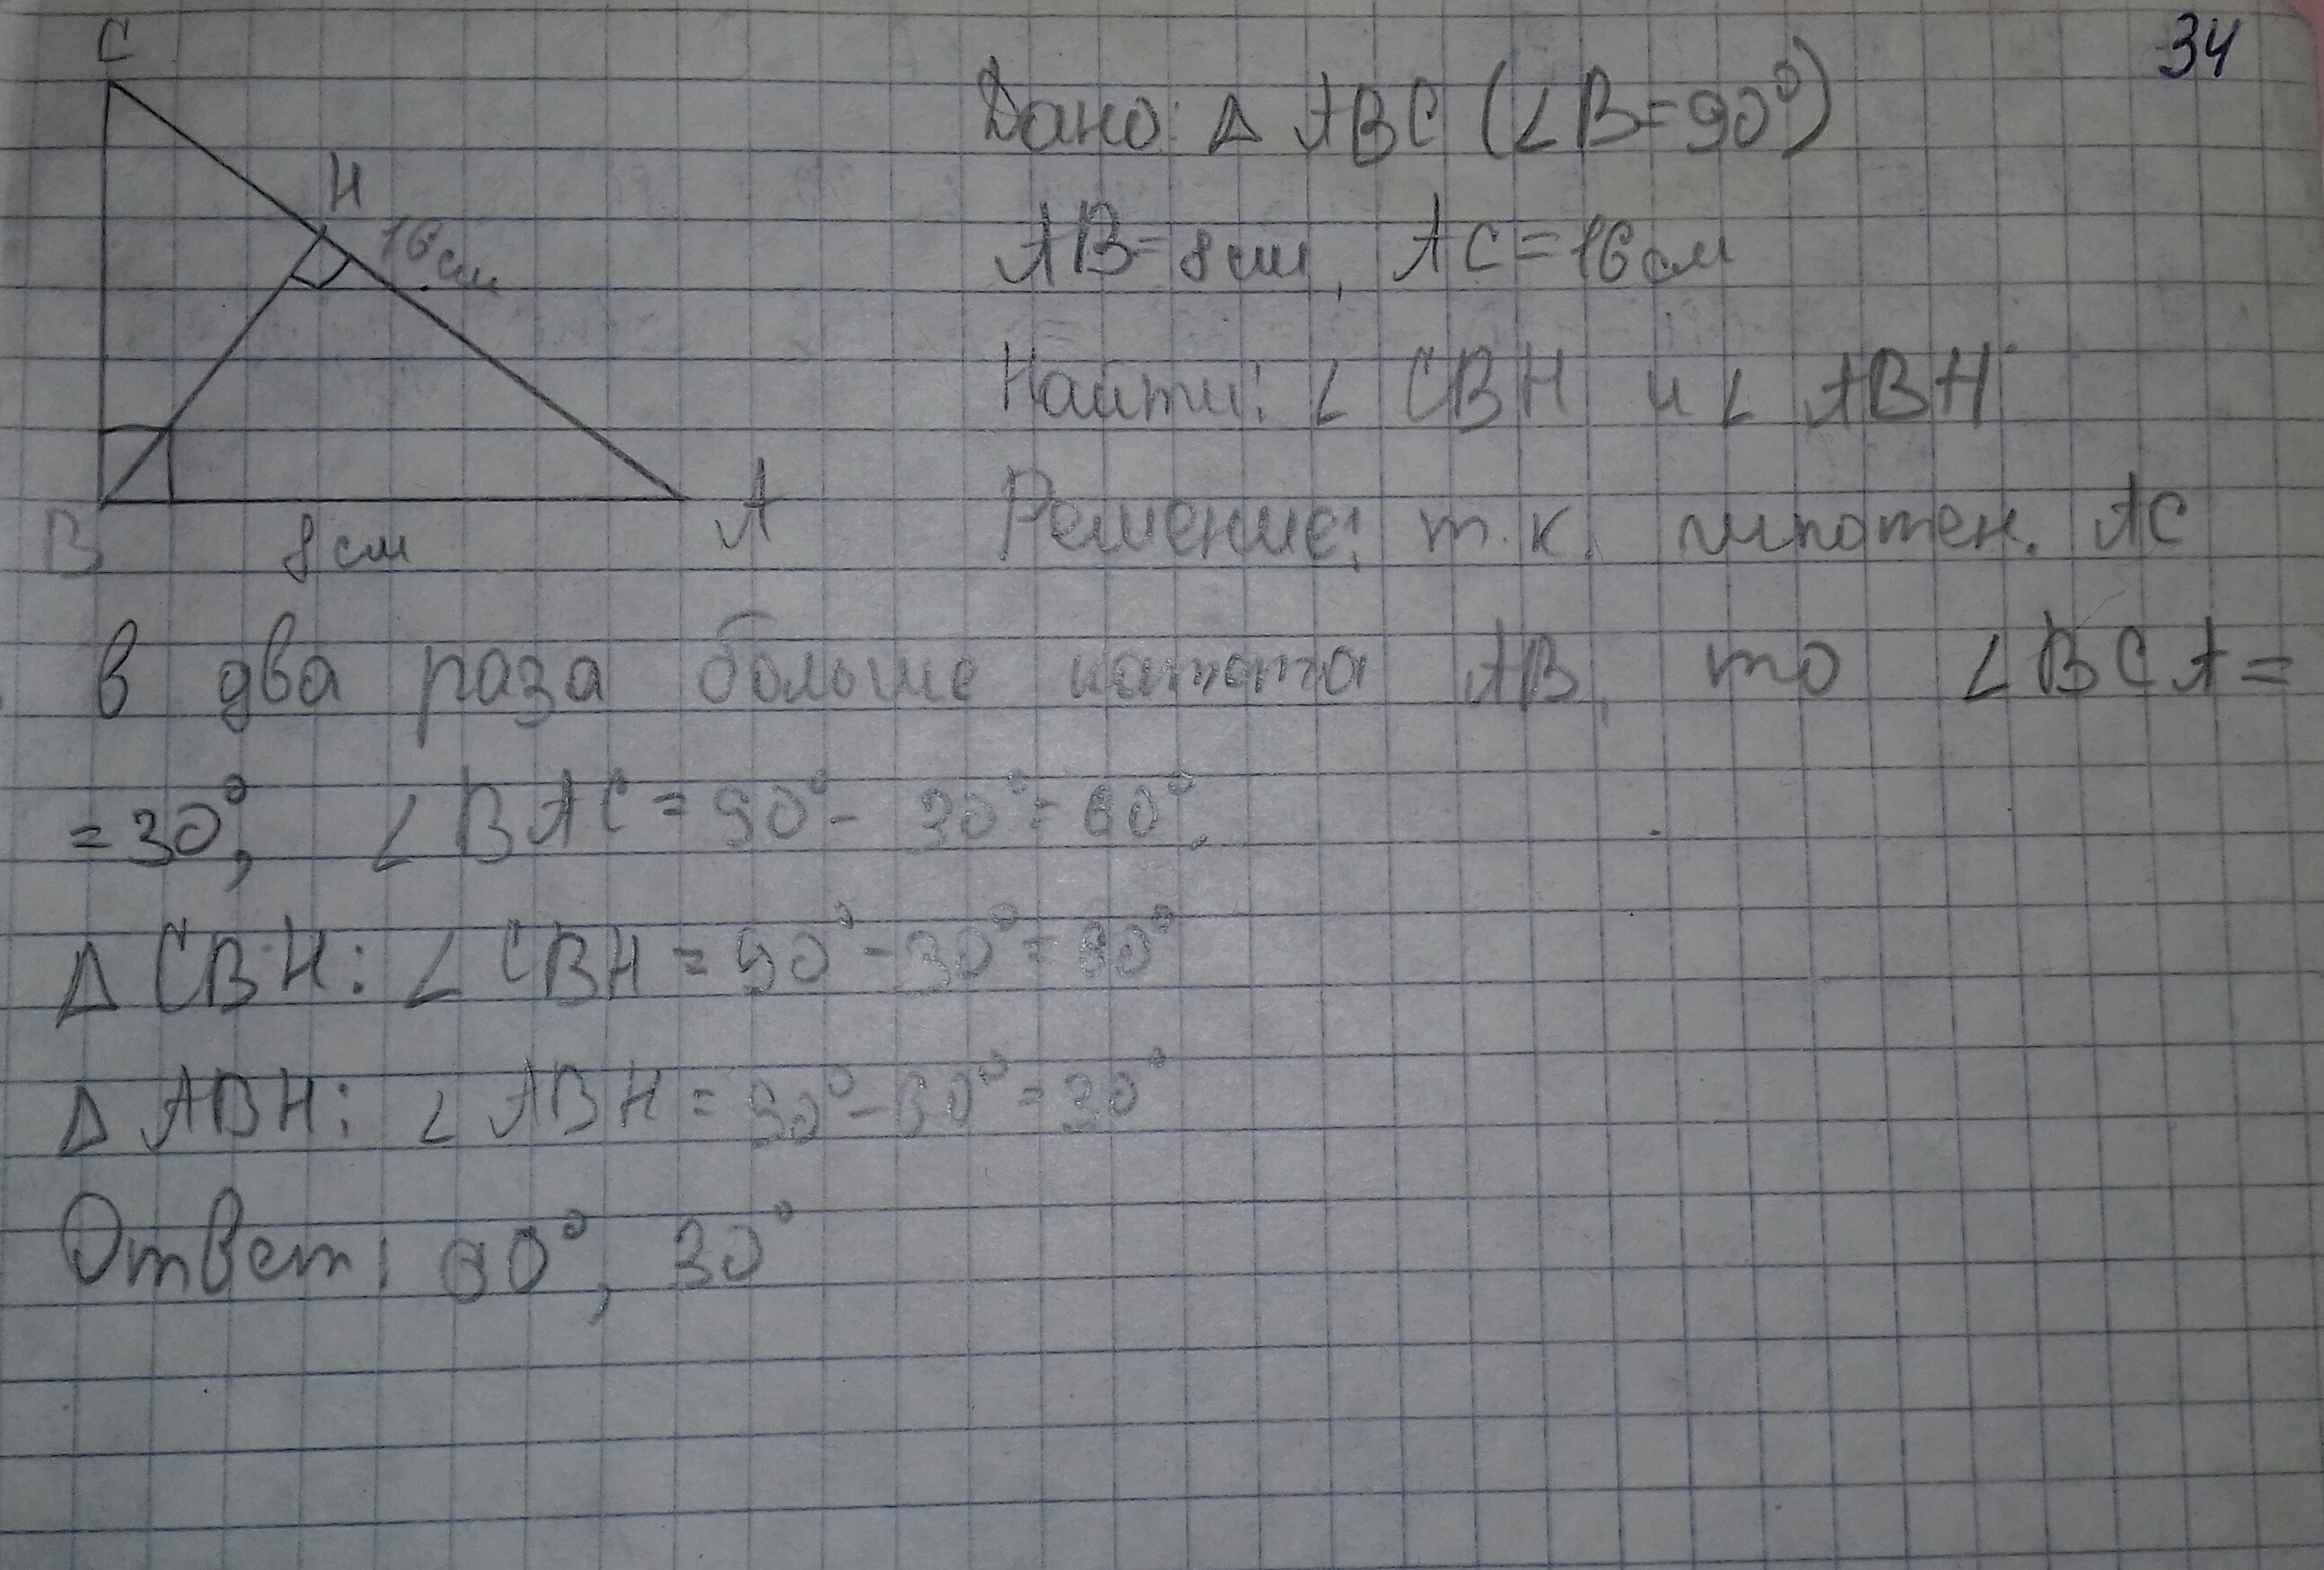 34
C
H
16см
B
8см
A
Дано: Δ ABC (∠B=90°)
AB=8см, AC=16см
Найти: ∠ CBH и ∠ ABH
Решение: т.к. гипотен. AC
в два раза больше катета AB, то ∠BCA=
=30°, ∠BAC=90°-30°=60°.
Δ CBH: ∠ CBH=90°-30°=60°
Δ ABH: ∠ ABH=90°-60°=30°
Ответ: 60°, 30°